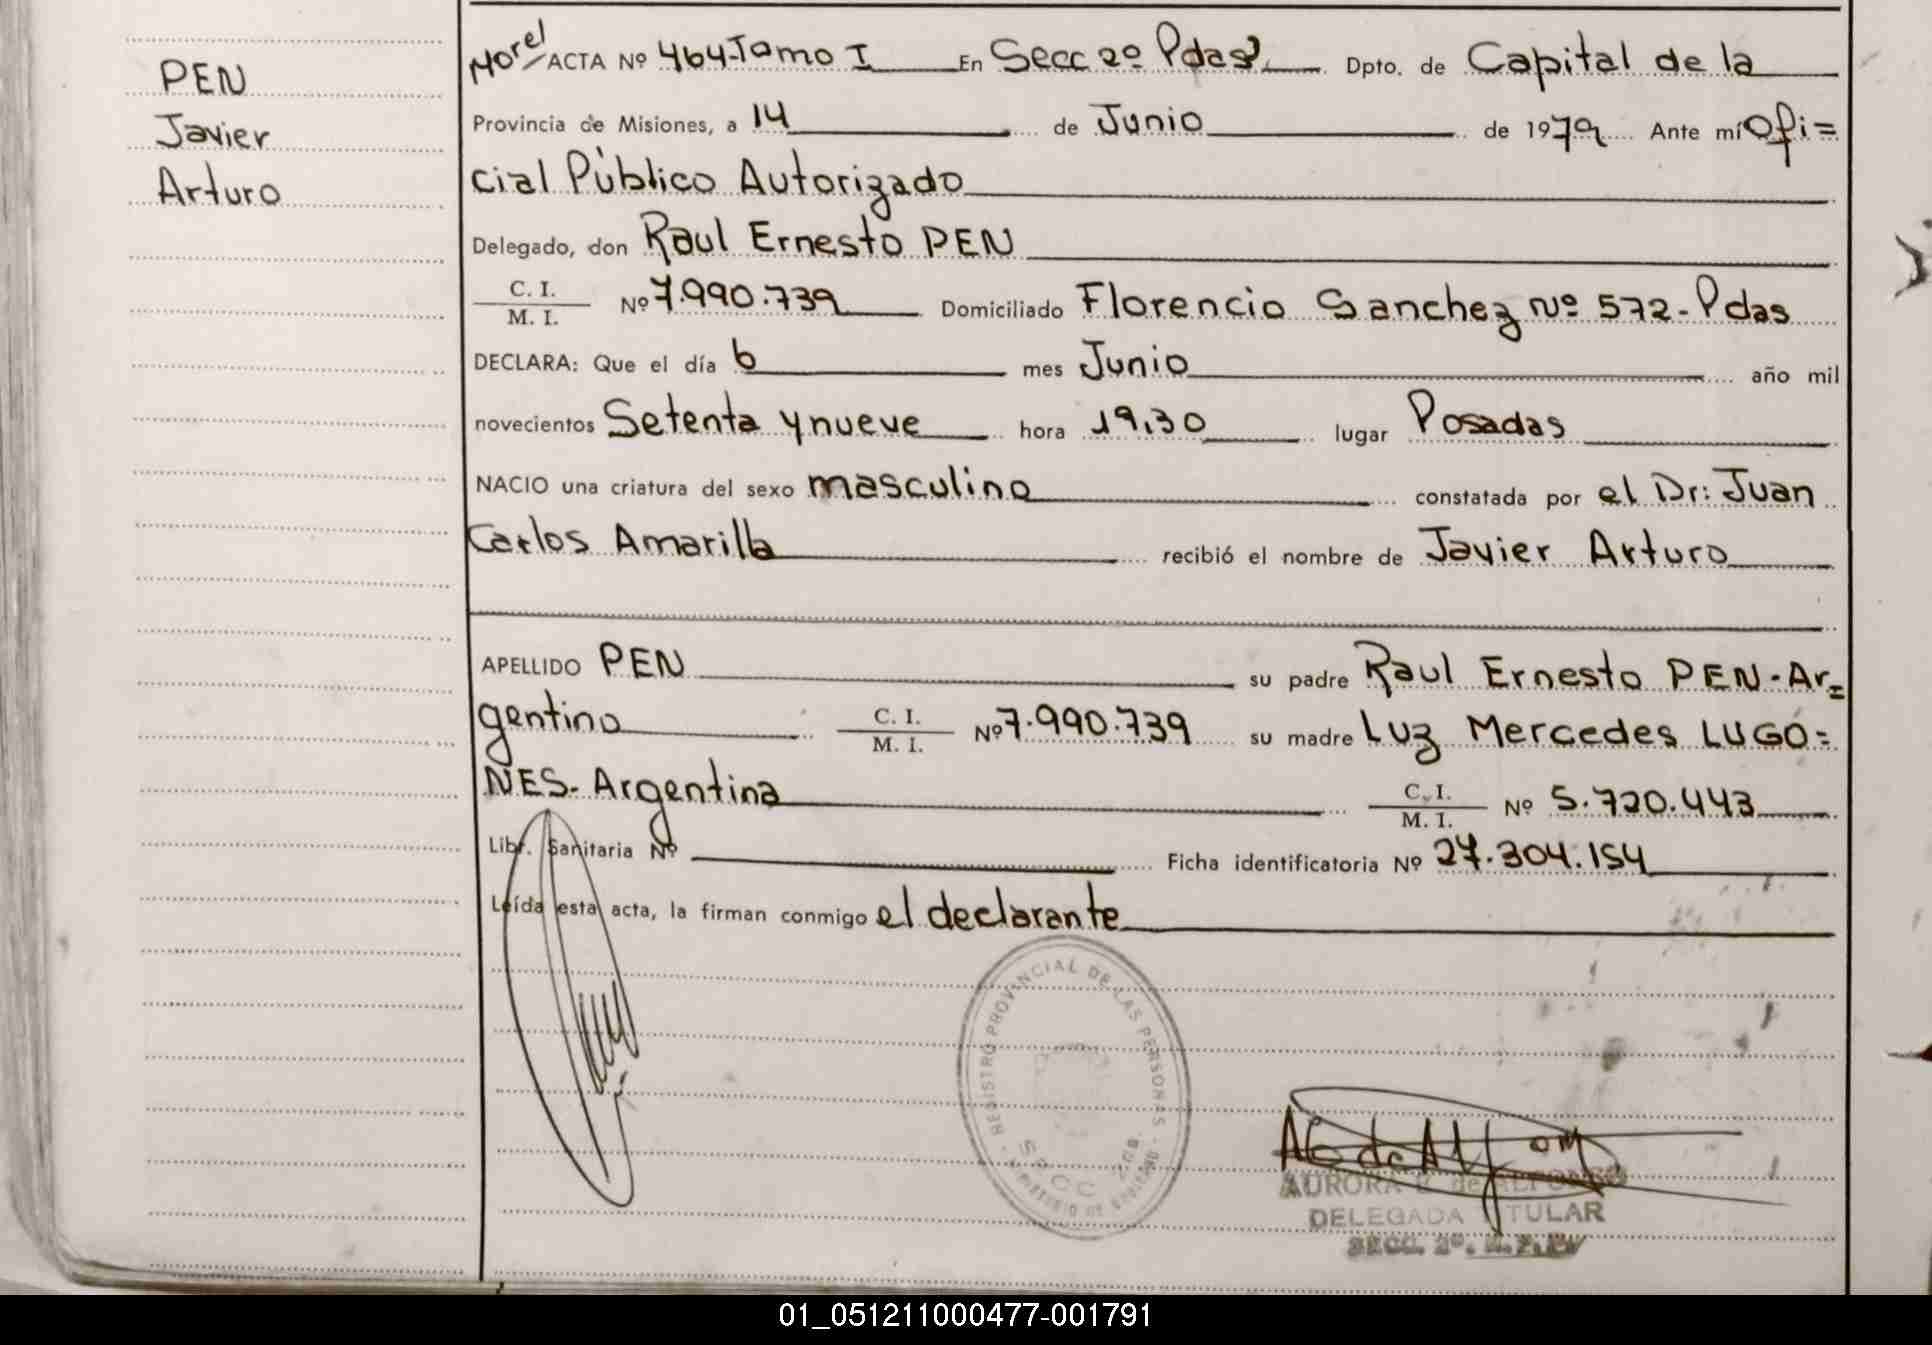 PEN
Javier
Arturo
Morel ACTA Nº 464-Tomo I En Secc 2º Pdas Dpto. de Capital de la
Provincia de Misiones, a 14 de Junio de 1979 Ante mí Ofi=
cial Público Autorizado
Delegado, don Raul Ernesto PEN
C. I.
M. I. Nº 7.990.739 Domiciliado Florencio Sanchez Nº 572-Pdas
DECLARA: Que el día 6 mes Junio año mil
novecientos Setenta y nueve hora 19,30 lugar Posadas
NACIO una criatura del sexo masculino constatada por el Dr: Juan
Carlos Amarilla recibió el nombre de Javier Arturo
APELLIDO PEN su padre Raul Ernesto PEN-Ar=
gentino C. I.
M. I. Nº 7.990.739 su madre Luz Mercedes LUGO=
NES-Argentina C. I.
M. I. Nº 5.720.443
Libr. Sanitaria Nº Ficha identificatoria Nº 27.304.154
Leída esta acta, la firman conmigo el declarante
REGISTRO PROVINCIAL DE LAS PERSONAS
AURORA de ALFONSO
DELEGADA TITULAR
SECC. 2º
01_051211000477-001791